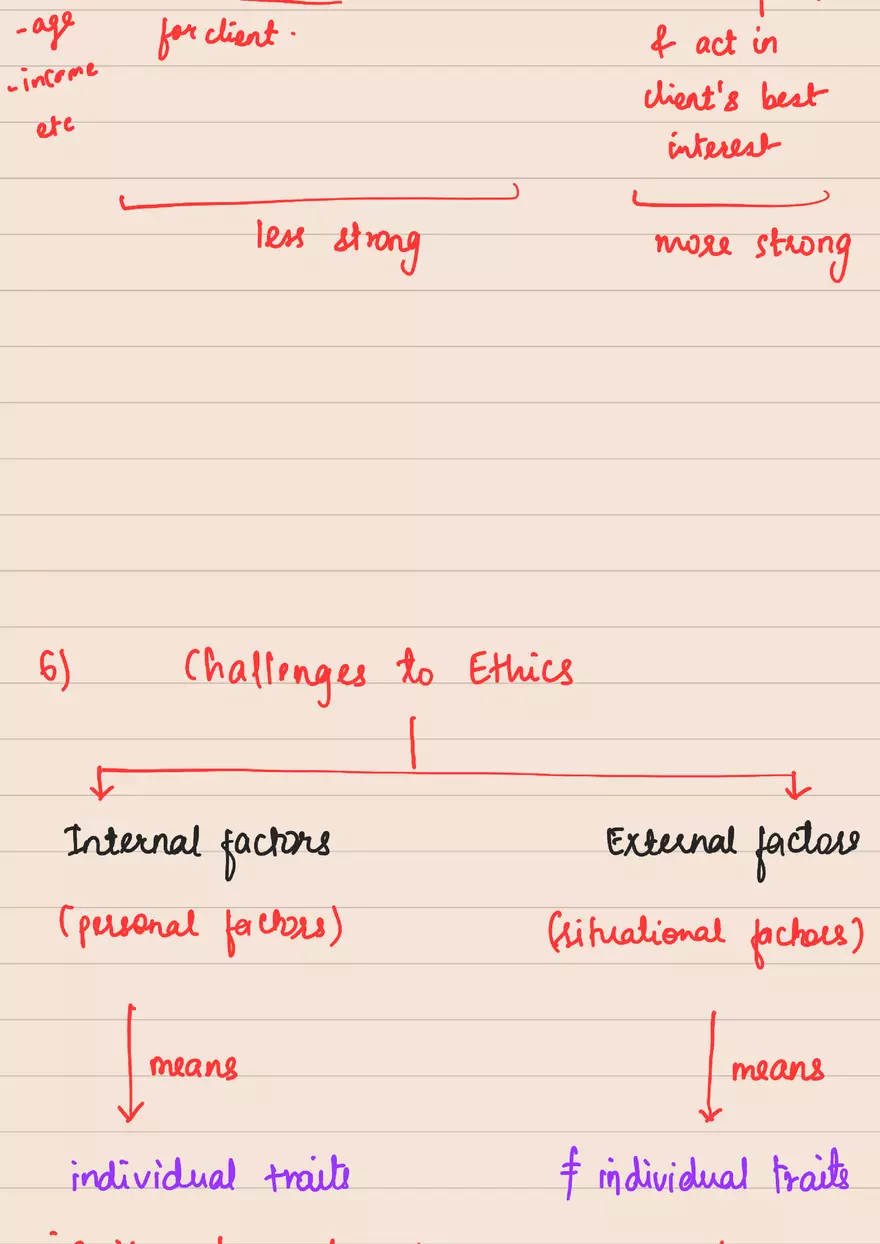 -age
for client.
-income
etc
& act in
client's best
interest
less strong
more strong
6) Challenges to Ethics
Internal factors
External factors
(personal factors)
(situational factors)
means
means
individual traits
≠ individual traits